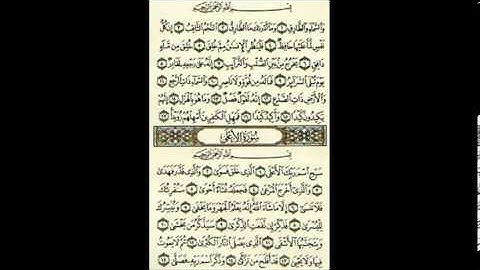 بِسْمِ ٱللَّهِ ٱلرَّحْمَٰنِ ٱلرَّحِيمِ
وَٱلسَّمَآءِ وَٱلطَّارِقِ ١ وَمَآ أَدْرَىٰكَ مَا ٱلطَّارِقُ ٢ ٱلنَّجْمُ ٱلثَّاقِبُ ٣ إِن كُلُّ
نَفْسٍ لَّمَّا عَلَيْهَا حَافِظٌ ٤ فَلْيَنظُرِ ٱلْإِنسَٰنُ مِمَّ خُلِقَ ٥ خُلِقَ مِن مَّآءٍ
دَافِقٍ ٦ يَخْرُجُ مِنۢ بَيْنِ ٱلصُّلْبِ وَٱلتَّرَآئِبِ ٧ إِنَّهُۥ عَلَىٰ رَجْعِهِۦ لَقَادِرٌ ٨
يَوْمَ تُبْلَى ٱلسَّرَآئِرُ ٩ فَمَا لَهُۥ مِن قُوَّةٍ وَلَا نَاصِرٍ ١٠ وَٱلسَّمَآءِ ذَاتِ ٱلرَّجْعِ ١١
وَٱلْأَرْضِ ذَاتِ ٱلصَّدْعِ ١٢ إِنَّهُۥ لَقَوْلٌ فَصْلٌ ١٣ وَمَا هُوَ بِٱلْهَزْلِ ١٤ إِنَّهُمْ
يَكِيدُونَ كَيْدًا ١٥ وَأَكِيدُ كَيْدًا ١٦ فَمَهِّلِ ٱلْكَٰفِرِينَ أَمْهِلْهُمْ رُوَيْدًۢا ١٧
سُورَةُ الأَعْلَىٰ
بِسْمِ ٱللَّهِ ٱلرَّحْمَٰنِ ٱلرَّحِيمِ
سَبِّحِ ٱسْمَ رَبِّكَ ٱلْأَعْلَى ١ ٱلَّذِى خَلَقَ فَسَوَّىٰ ٢ وَٱلَّذِى قَدَّرَ فَهَدَىٰ
٣ وَٱلَّذِىٓ أَخْرَجَ ٱلْمَرْعَىٰ ٤ فَجَعَلَهُۥ غُثَآءً أَحْوَىٰ ٥ سَنُقْرِئُكَ
فَلَا تَنسَىٰٓ ٦ إِلَّا مَا شَآءَ ٱللَّهُ إِنَّهُۥ يَعْلَمُ ٱلْجَهْرَ وَمَا يَخْفَىٰ ٧ وَنُيَسِّرُكَ
لِلْيُسْرَىٰ ٨ فَذَكِّرْ إِن نَّفَعَتِ ٱلذِّكْرَىٰ ٩ سَيَذَّكَّرُ مَن يَخْشَىٰ ١٠
وَيَتَجَنَّبُهَا ٱلْأَشْقَى ١١ ٱلَّذِى يَصْلَى ٱلنَّارَ ٱلْكُبْرَىٰ ١٢ ثُمَّ لَا يَمُوتُ
فِيهَا وَلَا يَحْيَىٰ ١٣ قَدْ أَفْلَحَ مَن تَزَكَّىٰ ١٤ وَذَكَرَ ٱسْمَ رَبِّهِۦ فَصَلَّىٰ ١٥